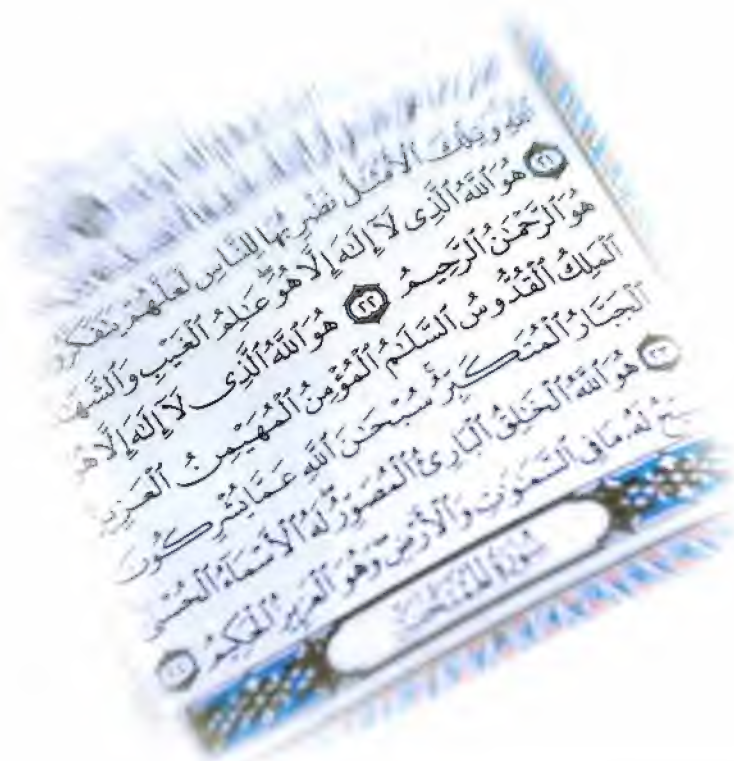 ٱللَّهِ وَتِلْكَ ٱلْأَمْثَـٰلُ نَضْرِبُهَا لِلنَّاسِ لَعَلَّهُمْ يَتَفَكَّرُو
٢١ هُوَ ٱللَّهُ ٱلَّذِى لَآ إِلَـٰهَ إِلَّا هُوَ ۖ عَـٰلِمُ ٱلْغَيْبِ وَٱلشَّهَـ
هُوَ ٱلرَّحْمَـٰنُ ٱلرَّحِيمُ ٢٢ هُوَ ٱللَّهُ ٱلَّذِى لَآ إِلَـٰهَ إِلَّا هُوَ
ٱلْمَلِكُ ٱلْقُدُّوسُ ٱلسَّلَـٰمُ ٱلْمُؤْمِنُ ٱلْمُهَيْمِنُ ٱلْعَزِيزُ
ٱلْجَبَّارُ ٱلْمُتَكَبِّرُ ۚ سُبْحَـٰنَ ٱللَّهِ عَمَّا يُشْرِكُونَ
٢٣ هُوَ ٱللَّهُ ٱلْخَـٰلِقُ ٱلْبَارِئُ ٱلْمُصَوِّرُ ۖ لَهُ ٱلْأَسْمَآءُ ٱلْحُسْنَ
يُسَبِّحُ لَهُۥ مَا فِى ٱلسَّمَـٰوَٰتِ وَٱلْأَرْضِ ۖ وَهُوَ ٱلْعَزِيزُ ٱلْحَكِيمُ ٢٤
سُورَةُ ٱلْمُمْتَحَنَةِ